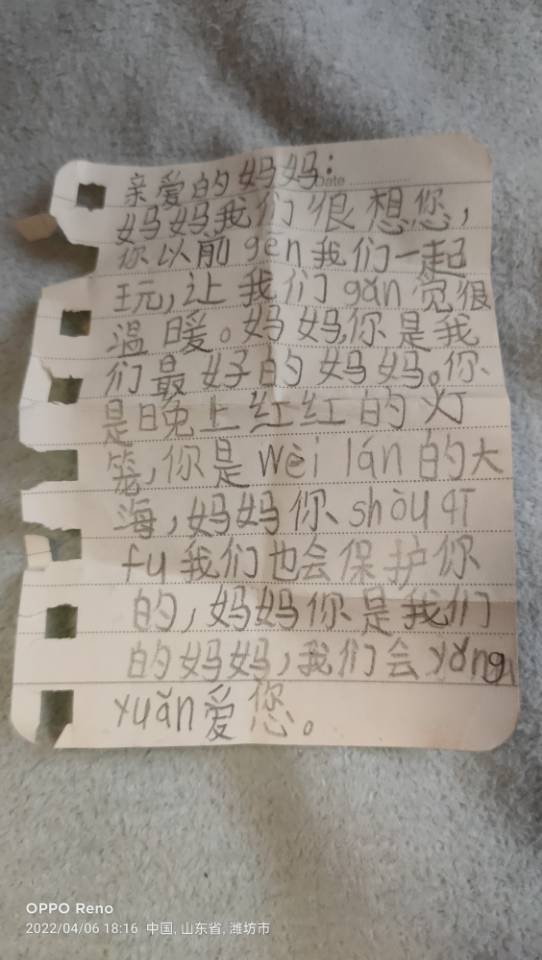 Date
亲爱的妈妈:
妈妈我们很想您,
你以前gēn我们一起
玩,让我们gǎn觉很
温暖。妈妈你是我
们最好的妈妈。你
是晚上红红的灯
笼,你是wèi lán的大
海,妈妈你shòu qī
fu我们也会保护你
的,妈妈你是我们
的妈妈,我们会yǒng
yuǎn爱您。
OPPO Reno
2022/04/06 18:16 中国, 山东省, 潍坊市